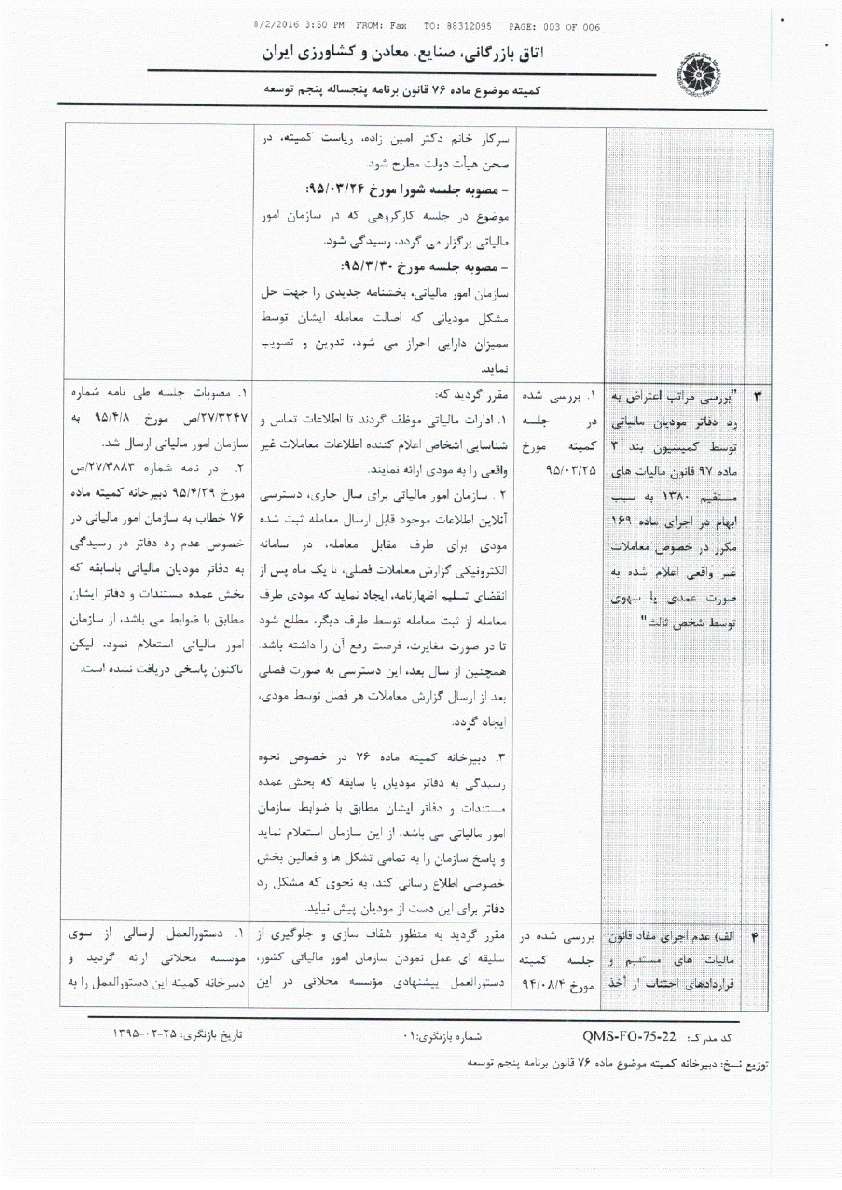 8/2/2016 3:50 PM FROM: Fax TO: 88312095 PAGE: 003 OF 006
اتاق بازرگانی، صنایع، معادن و کشاورزی ایران
کمیته موضوع ماده ۷۶ قانون برنامه پنجساله پنجم توسعه
سرکار خانم دکتر امین زاده، ریاست کمیته، در
صحن هیأت دولت مطرح شود.
- مصوبه جلسه شورا مورخ ۹۵/۰۳/۲۶:
موضوع در جلسه کارگروهی که در سازمان امور
مالیاتی برگزار می گردد، رسیدگی شود.
- مصوبه جلسه مورخ ۹۵/۳/۳۰:
سازمان امور مالیاتی، بخشنامه جدیدی را جهت حل
مشکل مودیانی که اصالت معامله ایشان توسط
ممیزان دارایی احراز می شود، تدوین و تصویب
نماید.
۳
"بررسی مراتب اعتراض به
رد دفاتر مودیان مالیاتی
توسط کمیسیون بند ۳
ماده ۹۷ قانون مالیات های
مستقیم ۱۳۸۰ به سبب
ابهام در اجرای ماده ۱۶۹
مکرر در خصوص معاملات
غیر واقعی اعلام شده به
صورت عمدی یا سهوی
توسط شخص ثالث"
۱. بررسی شده
در جلسه
کمیته مورخ
۹۵/۰۳/۲۵
مقرر گردید که:
۱. ادارات مالیاتی موظف گردند تا اطلاعات تماس و
شناسایی اشخاص اعلام کننده اطلاعات معاملات غیر
واقعی را به مودی ارائه نمایند.
۲ . سازمان امور مالیاتی برای سال جاری، دسترسی
آنلاین اطلاعات موجود قابل ارسال معامله ثبت شده
مودی برای طرف مقابل معامله، در سامانه
الکترونیکی گزارش معاملات فصلی، تا یک ماه پس از
انقضای تسلیم اظهارنامه، ایجاد نماید که مودی طرف
معامله از ثبت معامله توسط طرف دیگر، مطلع شود
تا در صورت مغایرت، فرصت رفع آن را داشته باشد.
همچنین از سال بعد، این دسترسی به صورت فصلی
بعد از ارسال گزارش معاملات هر فصل توسط مودی،
ایجاد گردد.
۳. دبیرخانه کمیته ماده ۷۶ در خصوص نحوه
رسیدگی به دفاتر مودیان با سابقه که بخش عمده
مستندات و دفاتر ایشان مطابق با ضوابط سازمان
امور مالیاتی می باشد، از این سازمان استعلام نماید
و پاسخ سازمان را به تمامی تشکل ها و فعالین بخش
خصوصی اطلاع رسانی کند، به نحوی که مشکل رد
دفاتر برای این دست از مودیان پیش نیاید.
۱. مصوبات جلسه طی نامه شماره
۲۷/۳۲۴۷/ص مورخ ۹۵/۴/۸ به
سازمان امور مالیاتی ارسال شد.
۲. در نامه شماره ۲۷/۳۸۸۳/ص
مورخ ۹۵/۴/۲۹ دبیرخانه کمیته ماده
۷۶ خطاب به سازمان امور مالیاتی در
خصوص عدم رد دفاتر در رسیدگی
به دفاتر مودیان مالیاتی باسابقه که
بخش عمده مستندات و دفاتر ایشان
مطابق با ضوابط می باشد، از سازمان
امور مالیاتی استعلام نمود، لیکن
تاکنون پاسخی دریافت نشده است.
۴
الف) عدم اجرای مفاد قانون
مالیات های مستقیم و
قراردادهای اجتناب از أخذ
بررسی شده در
جلسه کمیته
مورخ ۹۴/۰۸/۴
مقرر گردید به منظور شفاف سازی و جلوگیری از
سلیقه ای عمل نمودن سازمان امور مالیاتی کشور،
دستورالعمل پیشنهادی مؤسسه محلاتی در این
۱. دستورالعمل ارسالی از سوی
موسسه محلاتی ارئه گردید و
دبیرخانه کمیته این دستورالعمل را به
کد مدرک: QMS-FO-75-22
شماره بازنگری: ۰۱
تاریخ بازنگری: ۲۵-۰۲-۱۳۹۵
توزیع نسخ: دبیرخانه کمیته موضوع ماده ۷۶ قانون برنامه پنجم توسعه